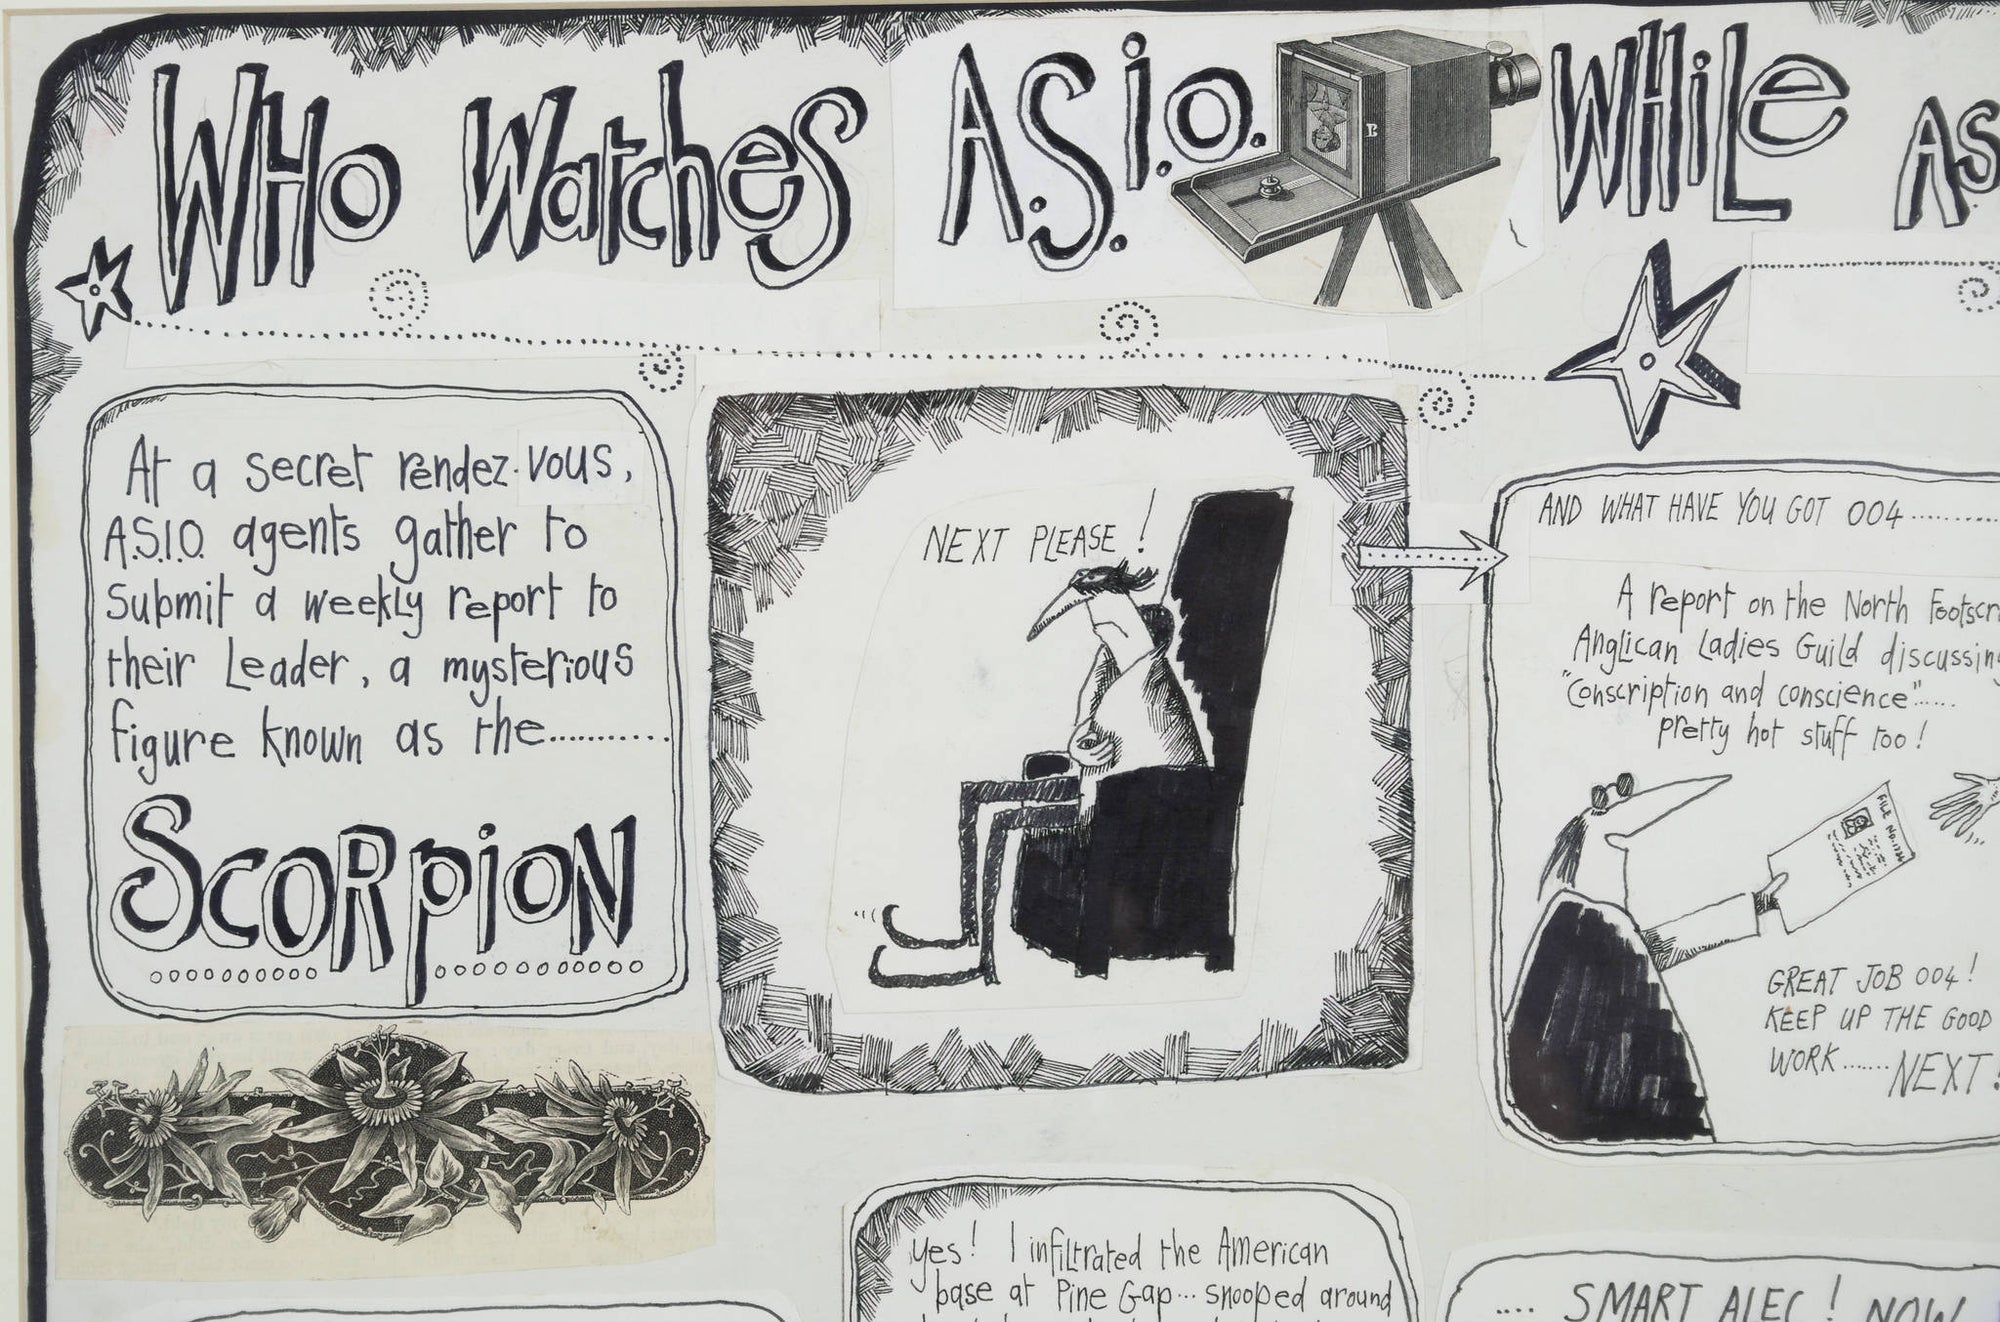 WHO WatcheS A.S.I.O. WHiLe AS
At a secret rendez-vous,
A.S.I.O. agents gather to
submit a weekly report to
their Leader, a mysterious
figure known as the............
SCORpiON
NEXT PLEASE!
AND WHAT HAVE YOU GOT 004..........
A report on the North Footscr
Anglican Ladies Guild discussing
"Conscription and conscience"......
pretty hot stuff too!
FILE NO.
GREAT JOB 004!
KEEP UP THE GOOD
WORK.......NEXT!
yes! I infiltrated the American
base at Pine Gap... snooped around
.... SMART ALEC! NOW